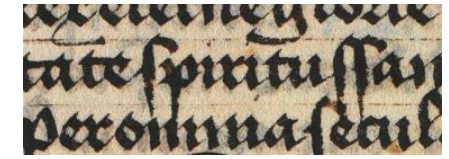 tate spiritus san
Per omnia secul